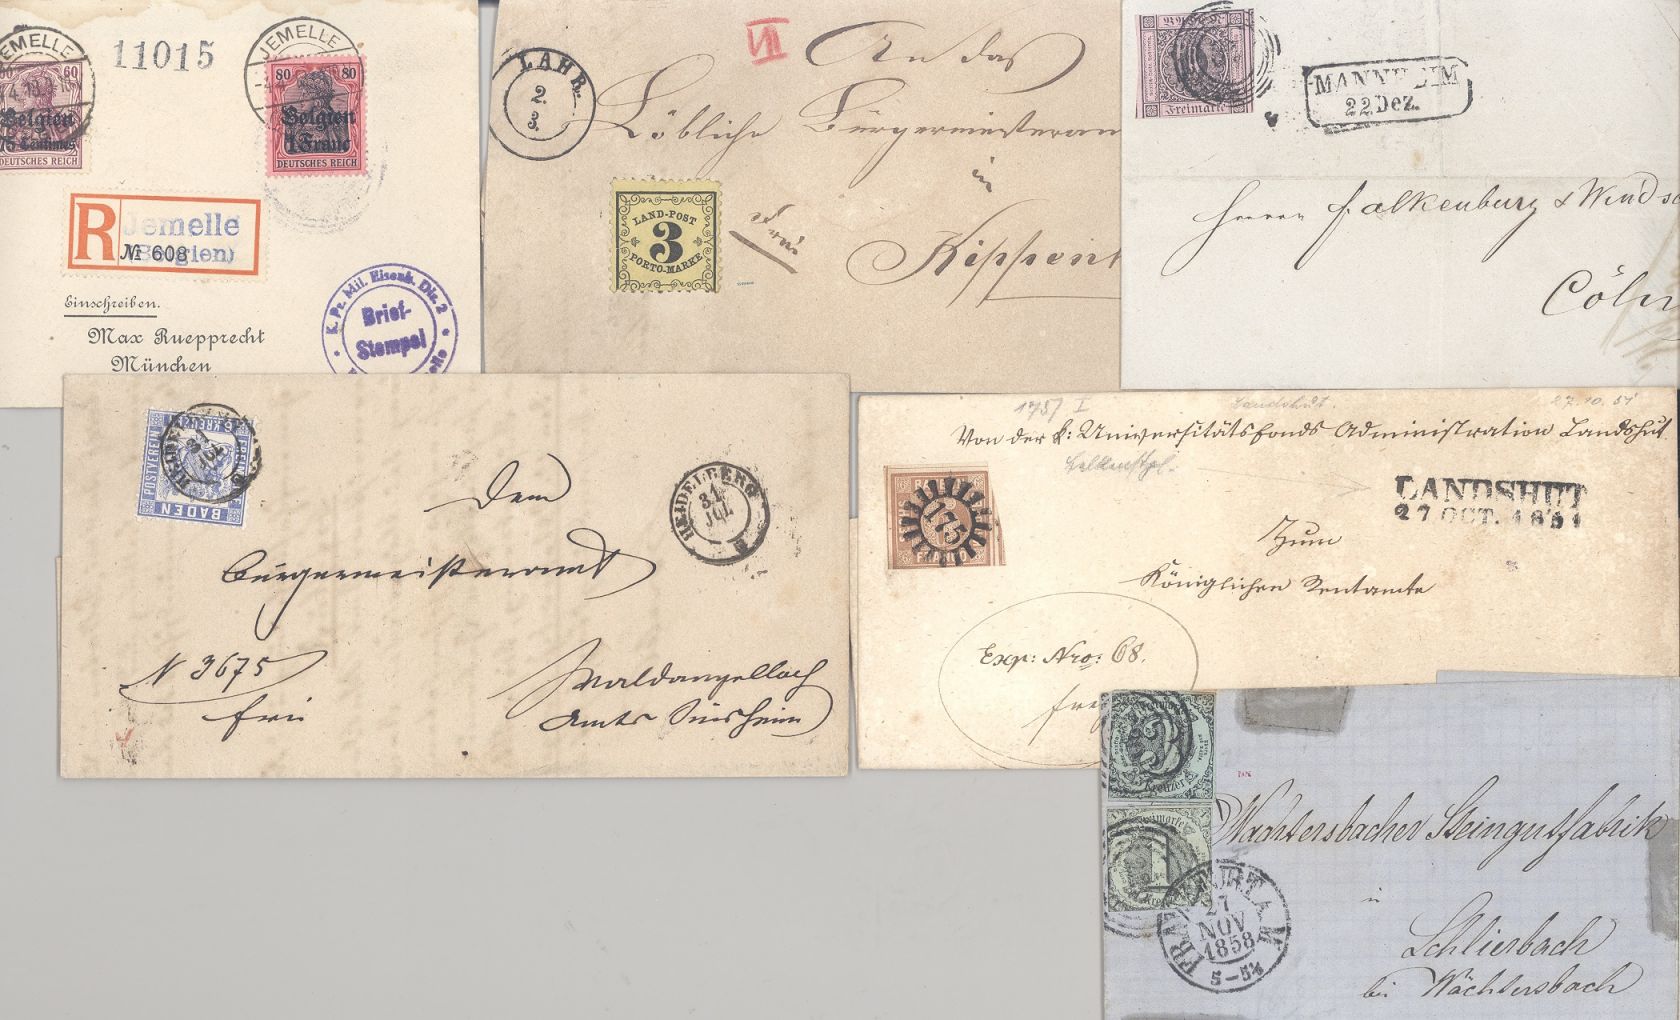 JEMELLE
11015
JEMELLE
60 60
Belgien
75 Centimes
DEUTSCHES REICH
80 80
Belgien
1 Franc
DEUTSCHES REICH
R Jemelle
№ 608
(Belgien)
Einschreiben.
Max Ruepprecht
München
K. Pr. Mil. Eisenb. Dir. 2
Brief-
Stempel
LAHR
2.
3.
VI
An das
Löbliche Bürgermeisteram
in
Kippenh
frei
LAND-POST
3
PORTO-MARKE
BADEN
Freimarke
MANNHEIM
22 Dez.
Herren Falkenburg & Winds
Cöln
POSTVEREIN
BADEN
KREUZER
HEIDELBERG
31
JUL
Dem
Bürgermeisteramt
N 3675
frei
Waldangelloch
Amts Sinsheim
1751 I
Landshut.
27.10.51
Von der k: Universitätsfonds Administration Landshut
175
FRANCO
LANDSHUT
27 OCT. 1851
Zum
Königlichen Rentamte
Exp: Nro: 68.
frei
Kreuzer
Freimarke
1
Kreuzer
FRANKFURT A. M.
27
NOV
1858
5-5½
Wächtersbacher Steingutfabrik
in
Schlierbach
bei Wächtersbach